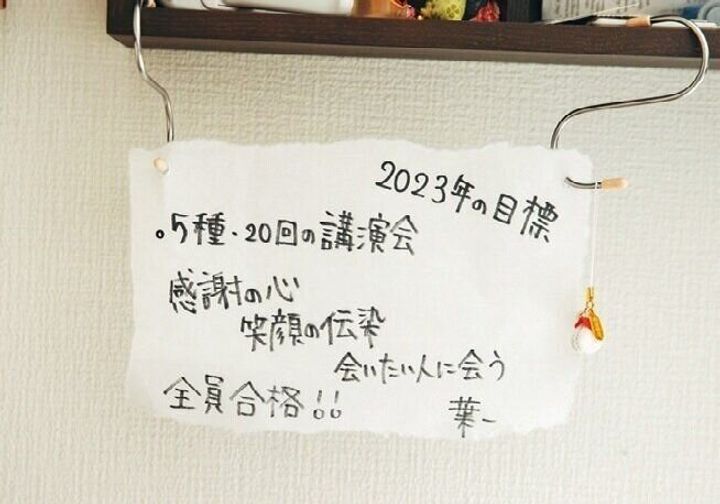 2023年の目標
。5種・20回の講演会
感謝の心
笑顔の伝染
会いたい人に会う
全員合格!!
葉一